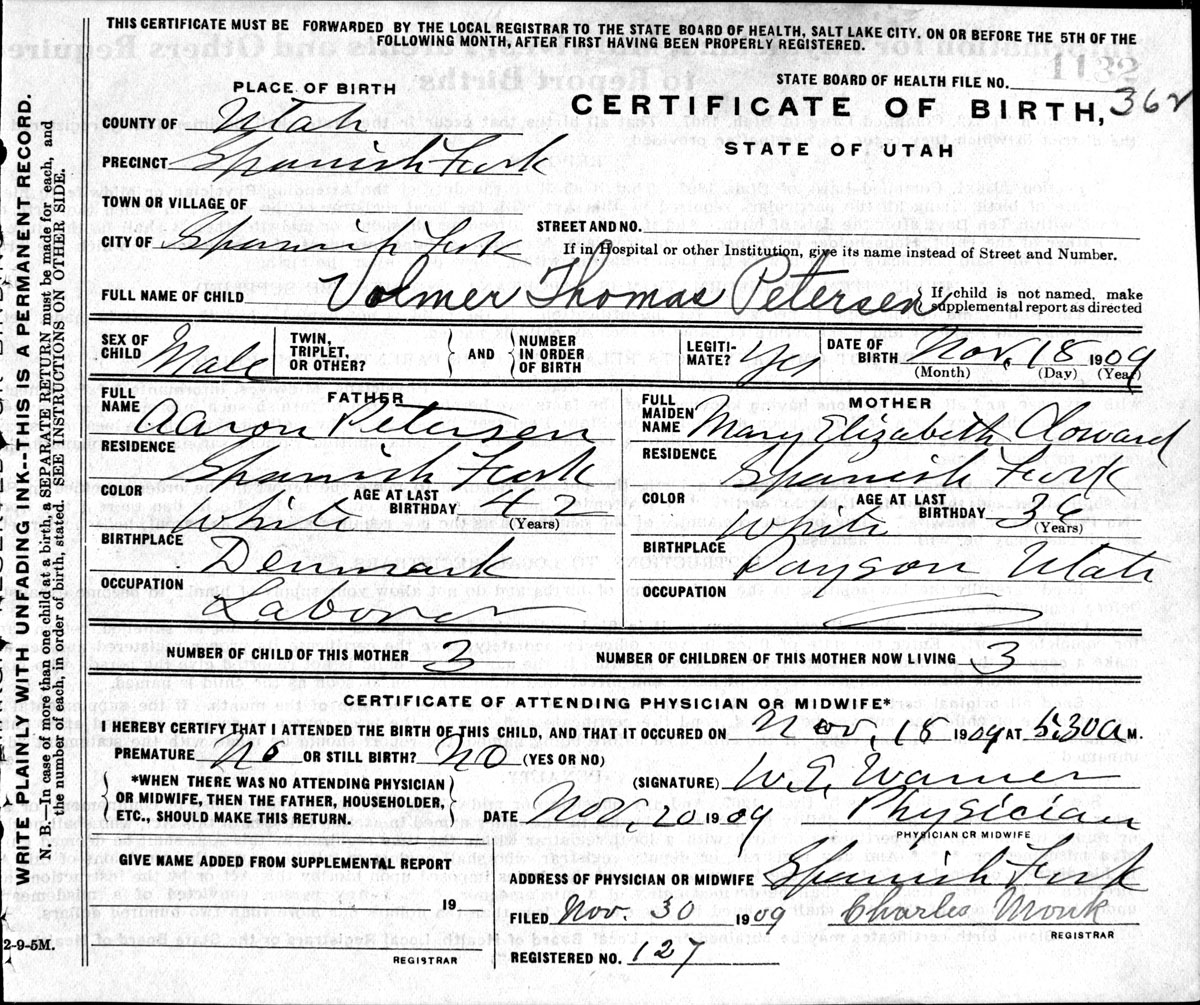 THIS CERTIFICATE MUST BE FORWARDED BY THE LOCAL REGISTRAR TO THE STATE BOARD OF HEALTH, SALT LAKE CITY. ON OR BEFORE THE 5TH OF THE
FOLLOWING MONTH, AFTER FIRST HAVING BEEN PROPERLY REGISTERED.
STATE BOARD OF HEALTH FILE NO.
PLACE OF BIRTH
CERTIFICATE OF BIRTH, 362
STATE OF UTAH
COUNTY OF Utah
PRECINCT Spanish Fork
TOWN OR VILLAGE OF
STREET AND NO.
CITY OF Spanish Fork
If in Hospital or other Institution, give its name instead of Street and Number.
FULL NAME OF CHILD Volmer Thomas Petersen
If child is not named, make
supplemental report as directed
SEX OF
CHILD Male
TWIN,
TRIPLET,
OR OTHER?
AND
NUMBER
IN ORDER
OF BIRTH
LEGITI-
MATE? yes
DATE OF
BIRTH Nov. 18 1909
(Month) (Day) (Year)
FATHER
FULL
NAME Aaron Petersen
RESIDENCE Spanish Fork
COLOR White
AGE AT LAST
BIRTHDAY 42
(Years)
BIRTHPLACE Denmark
OCCUPATION Laborer
MOTHER
FULL
MAIDEN
NAME Mary Elizabeth Cloward
RESIDENCE Spanish Fork
COLOR White
AGE AT LAST
BIRTHDAY 26
(Years)
BIRTHPLACE Payson Utah
OCCUPATION
NUMBER OF CHILD OF THIS MOTHER 3
NUMBER OF CHILDREN OF THIS MOTHER NOW LIVING 3
CERTIFICATE OF ATTENDING PHYSICIAN OR MIDWIFE*
I HEREBY CERTIFY THAT I ATTENDED THE BIRTH OF THIS CHILD, AND THAT IT OCCURED ON Nov. 18 1909 AT 5:30 A M.
PREMATURE No OR STILL BIRTH? NO (YES OR NO)
*WHEN THERE WAS NO ATTENDING PHYSICIAN
OR MIDWIFE, THEN THE FATHER, HOUSEHOLDER,
ETC., SHOULD MAKE THIS RETURN.
(SIGNATURE) W. E. Warner
DATE Nov. 20 1909 Physician
PHYSICIAN OR MIDWIFE
GIVE NAME ADDED FROM SUPPLEMENTAL REPORT
19
REGISTRAR
ADDRESS OF PHYSICIAN OR MIDWIFE Spanish Fork
FILED Nov. 30 1909 Charles Monk
REGISTRAR
REGISTERED NO. 127
WRITE PLAINLY WITH UNFADING INK--THIS IS A PERMANENT RECORD.
N. B.—In case of more than one child at a birth, a SEPARATE RETURN must be made for each, and
the number of each, in order of birth, stated. SEE INSTRUCTIONS ON OTHER SIDE.
2-9-5M.